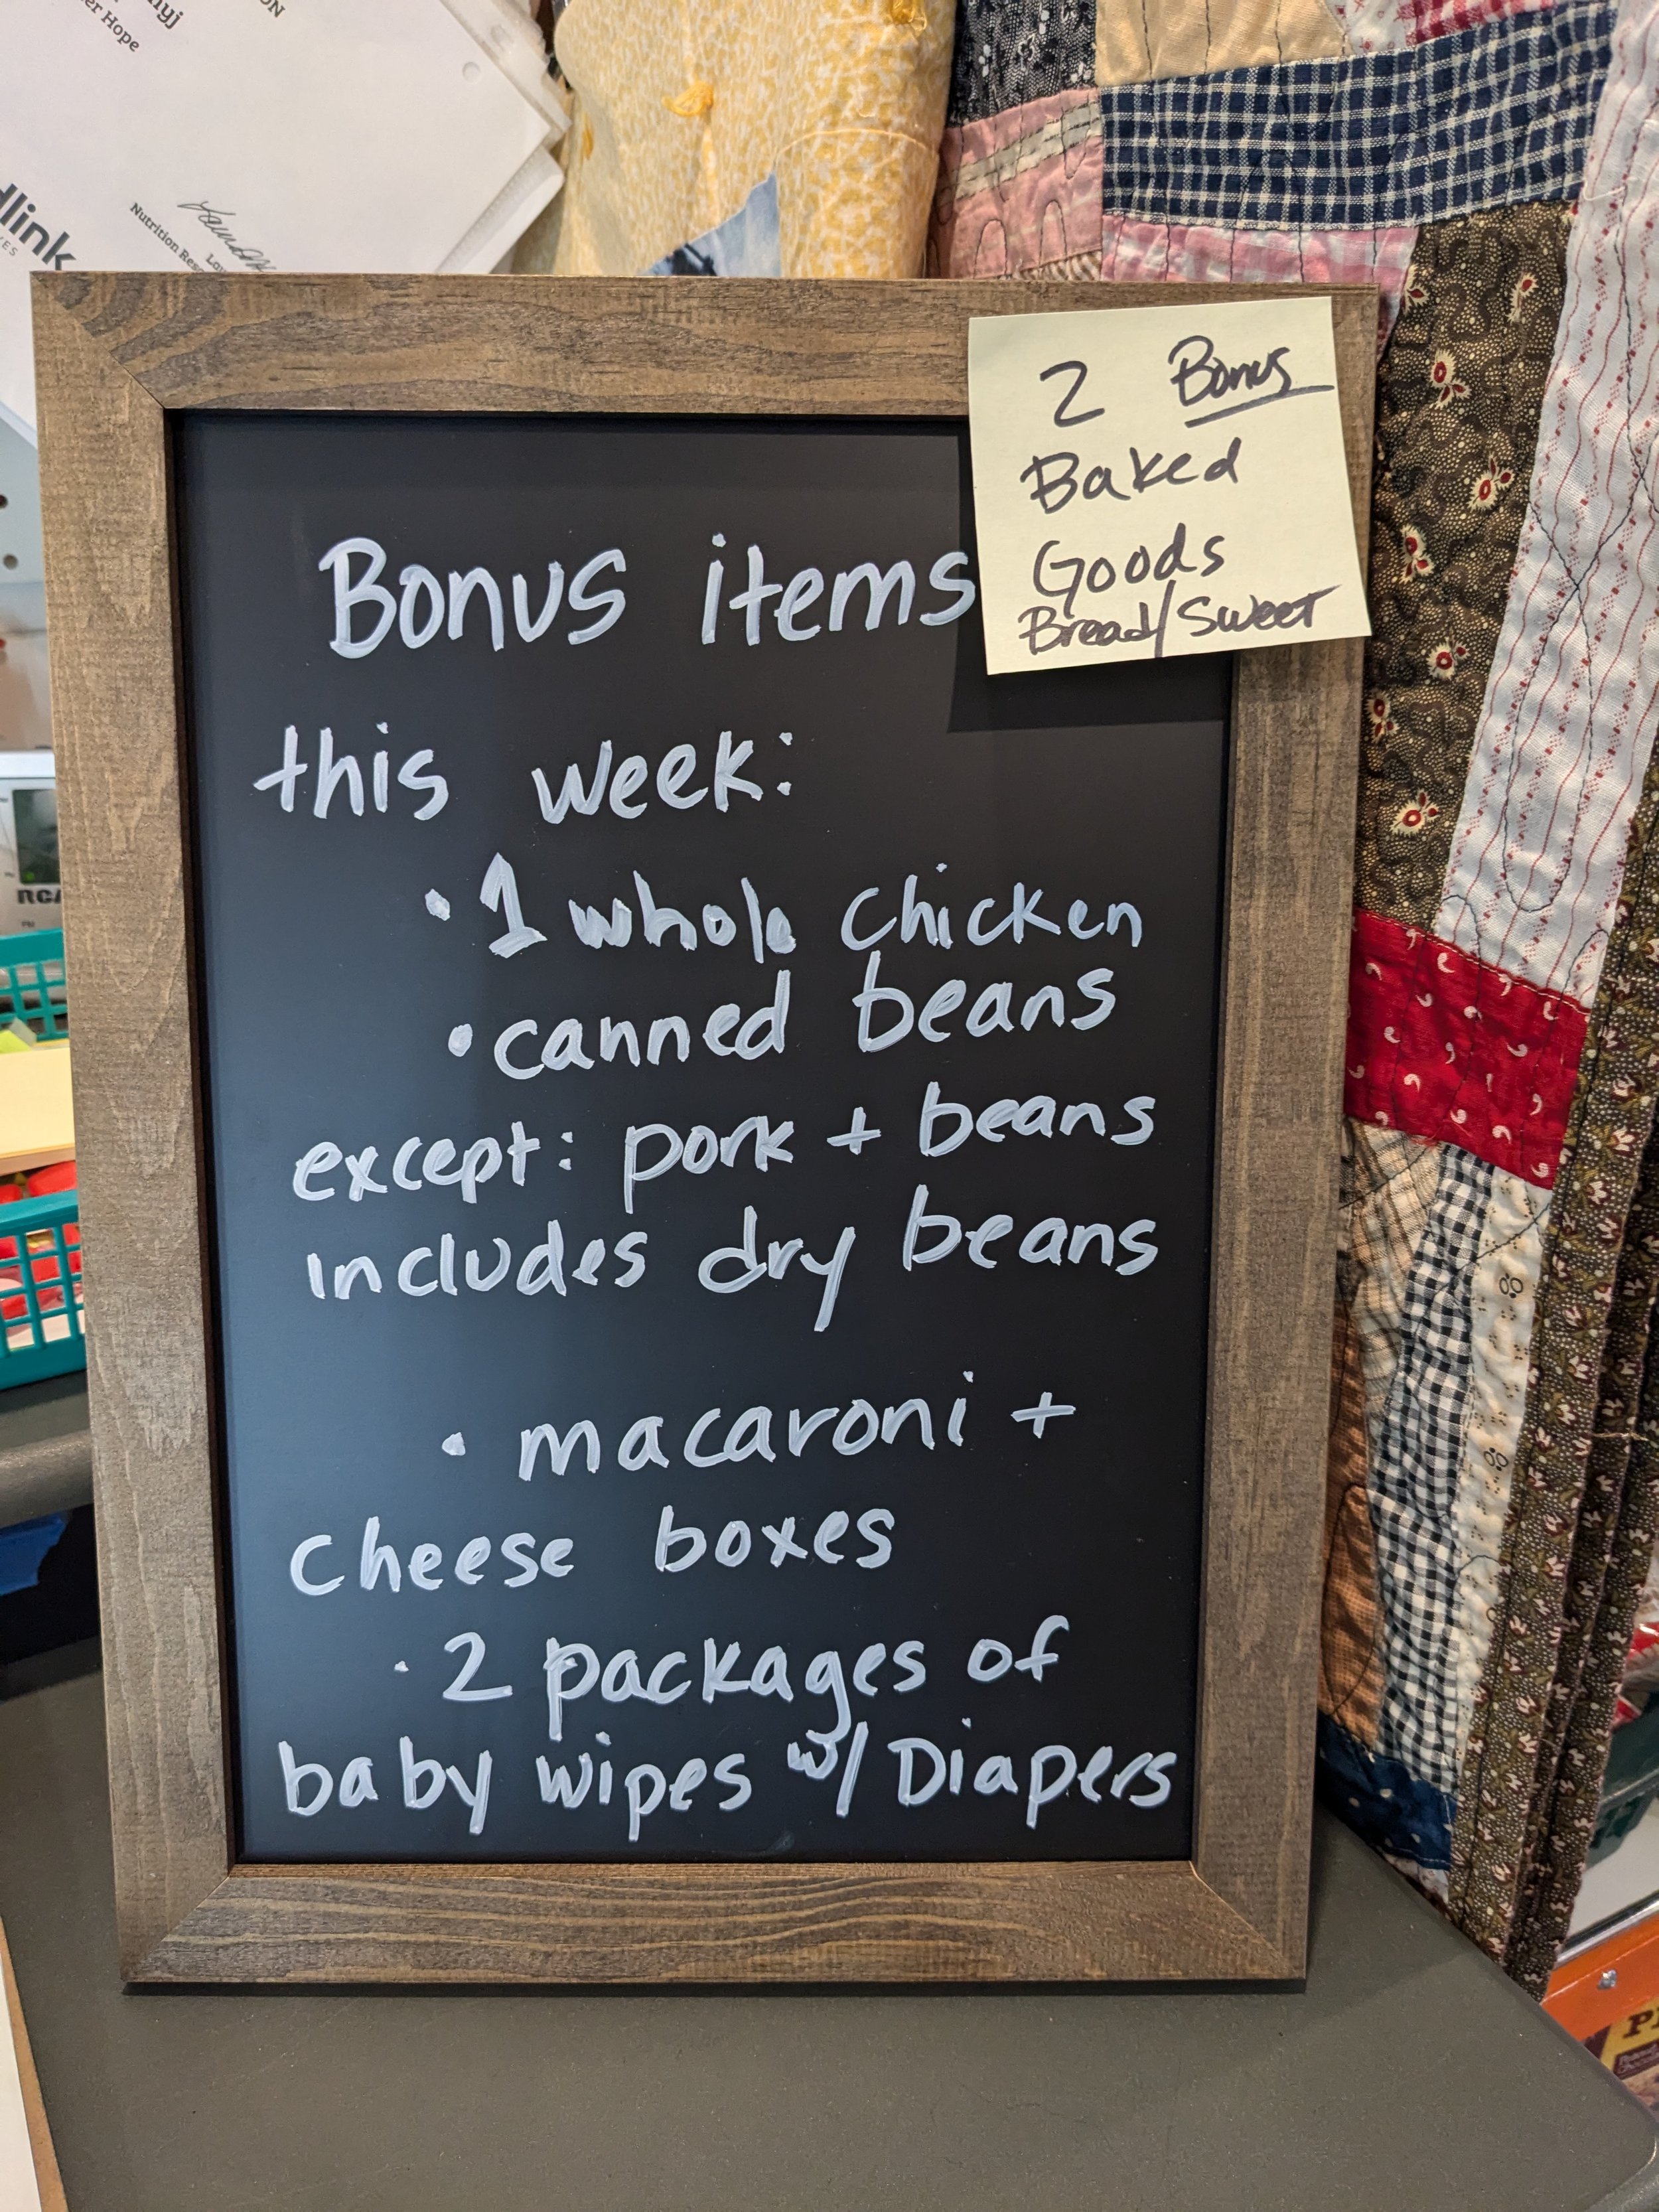 ON
er Hope
dlink
Nutrition
2 Bonus
Baked
Goods
Bread/Sweet
Bonus items
this week:
• 1 whole chicken
• canned beans
except: pork + beans
includes dry beans
• macaroni +
cheese boxes
• 2 packages of
baby wipes w/ Diapers
RCA